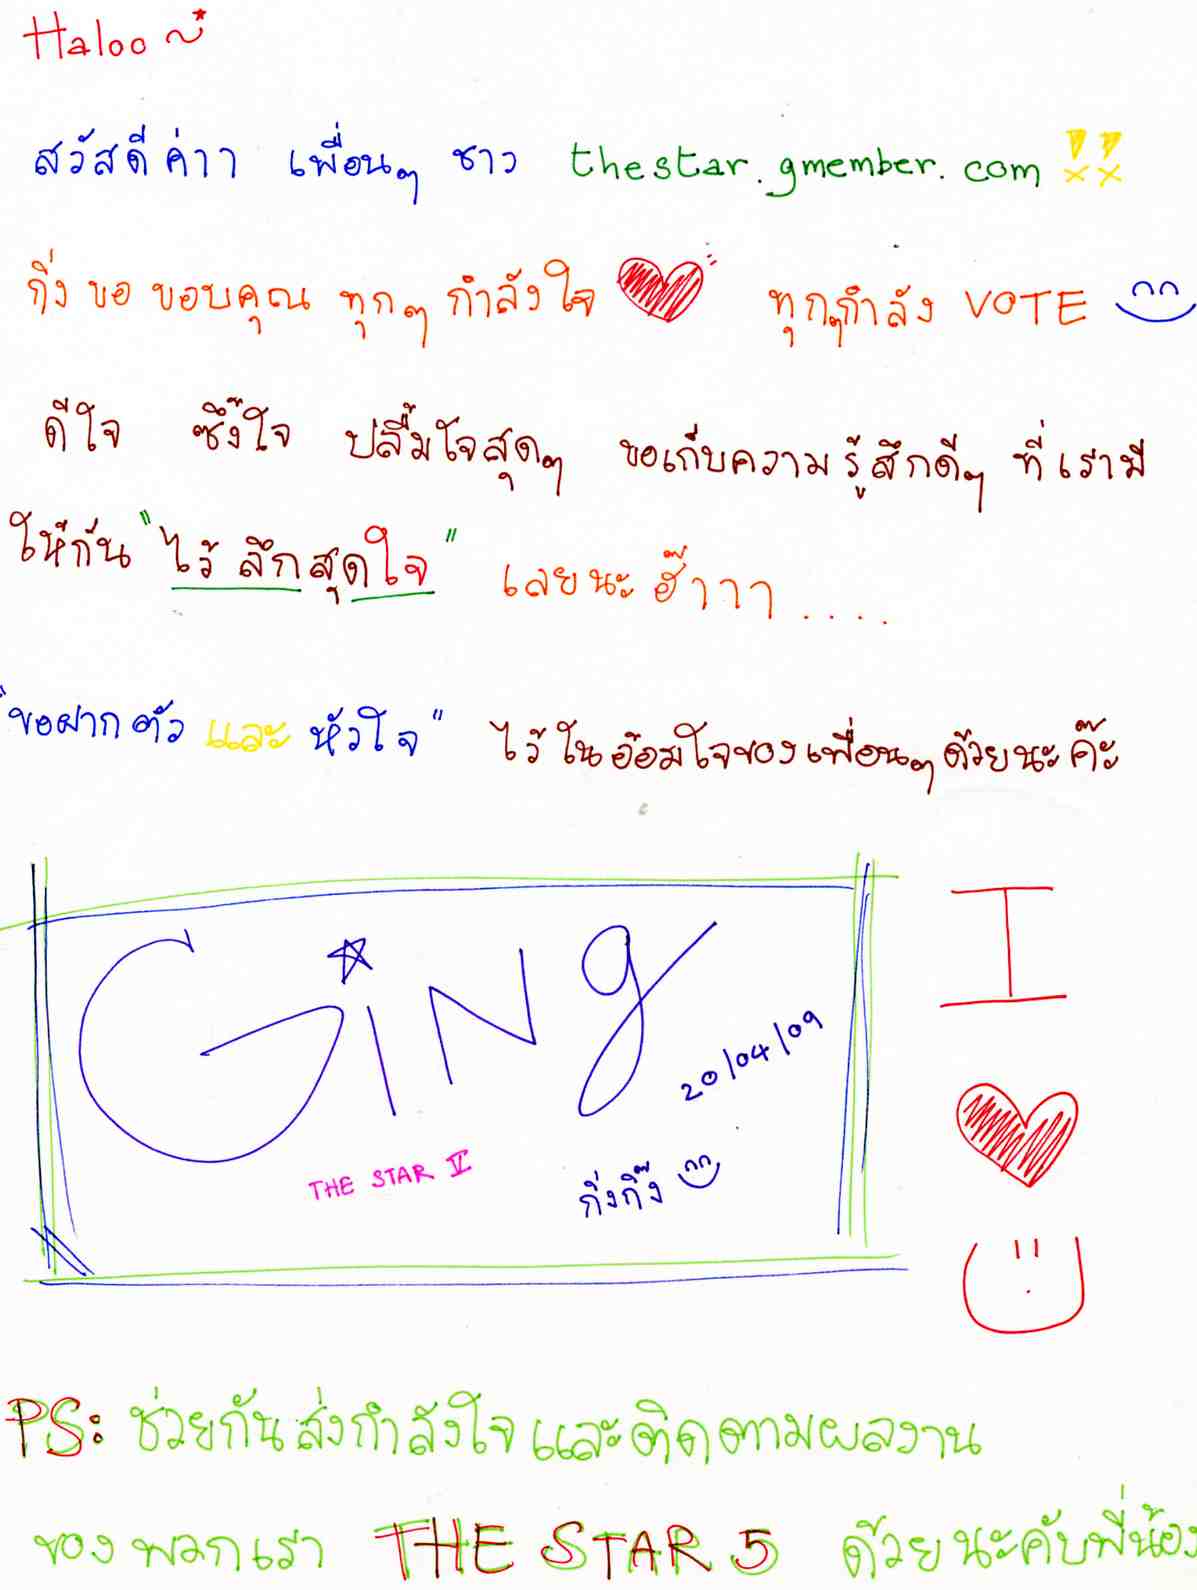 Haloo ~*
สวัสดีค่าา เพื่อนๆ ชาว thestar.gmember.com !!
กิ่งขอขอบคุณ ทุกๆกำลังใจ ทุกๆกำลัง VOTE
ดีใจ ซึ้งใจ ปลื้มใจสุดๆ ขอเก็บความรู้สึกดีๆ ที่เรามี
ให้กัน "ไว้ลึกสุดใจ" เลยนะฮ๊าาา ....
"ขอฝากตัว และ หัวใจ" ไว้ในอ้อมใจของเพื่อนๆด้วยนะค๊ะ
Ging
20/04/09
THE STAR V
กิ่งกิ๊ง
I
U
PS: ช่วยกันส่งกำลังใจและติดตามผลงาน
ของพวกเรา THE STAR 5 ด้วยนะคับพี่น้อง